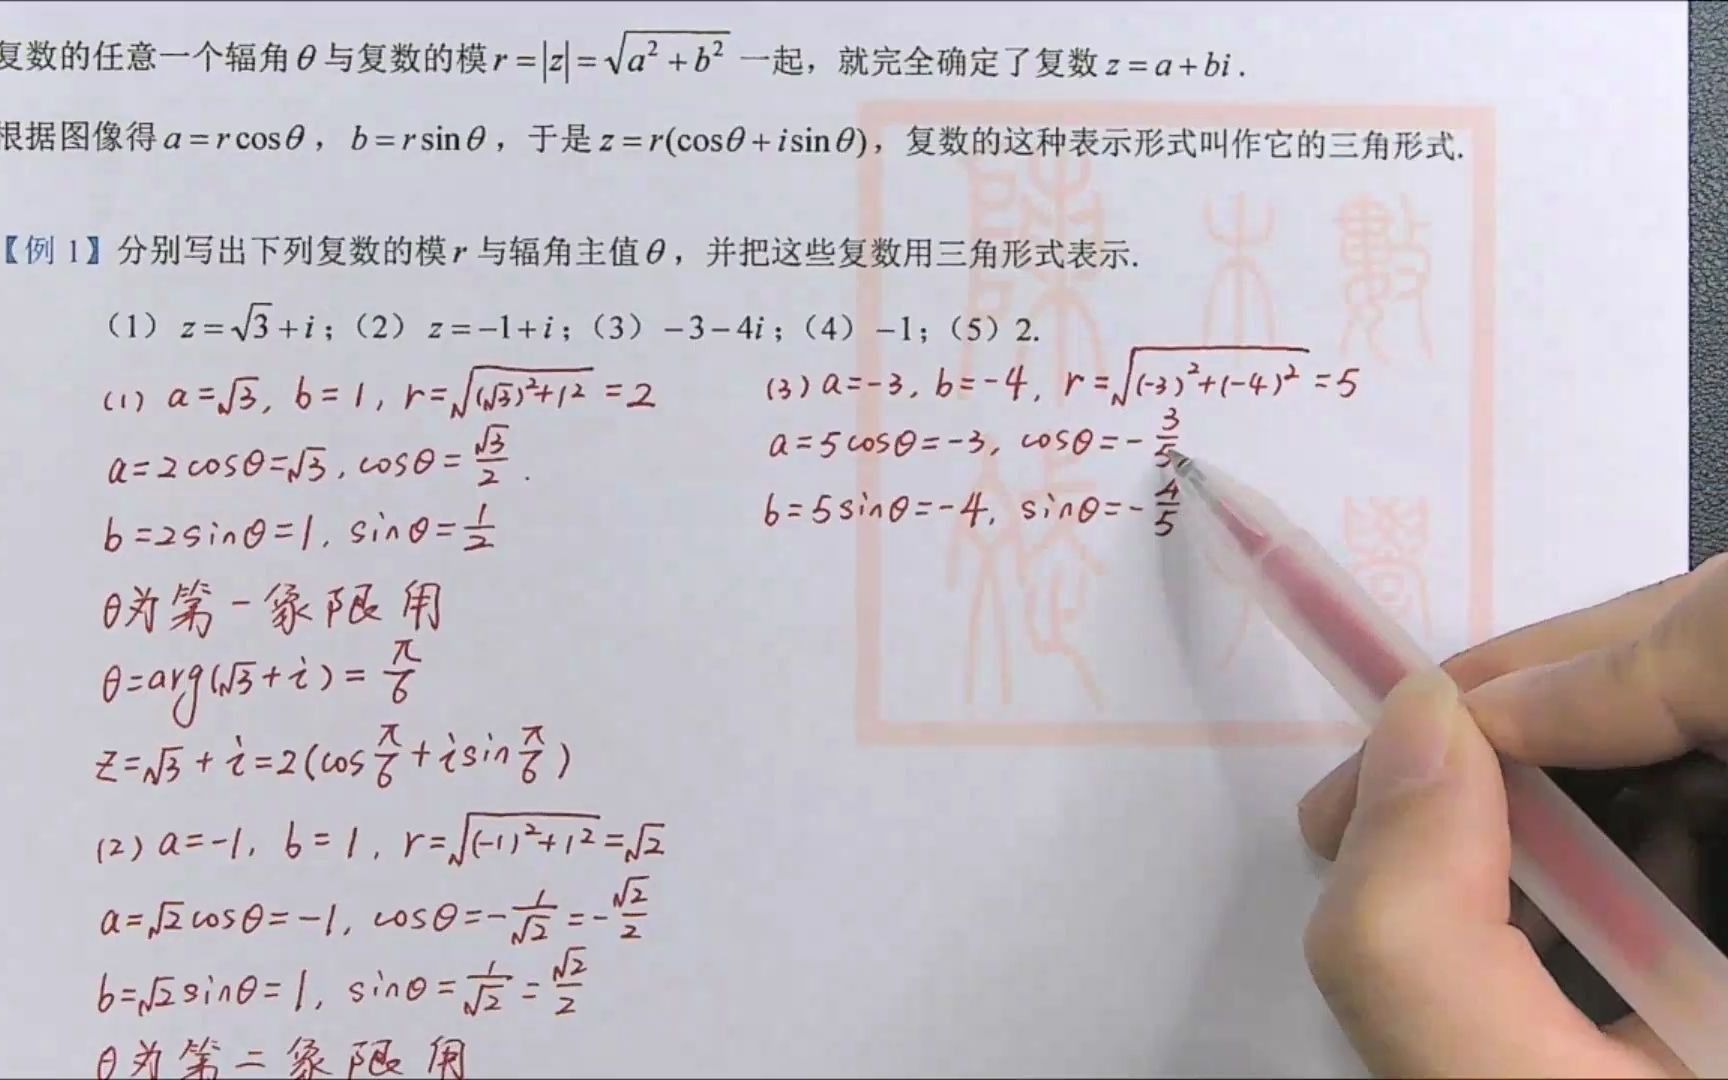 复数的任意一个辐角θ与复数的模r=|z|=√(a²+b²) 一起，就完全确定了复数z=a+bi.
根据图像得a=rcosθ，b=rsinθ，于是z=r(cosθ+isinθ)，复数的这种表示形式叫作它的三角形式.
【例1】分别写出下列复数的模r与辐角主值θ，并把这些复数用三角形式表示.
（1）z=√3+i；（2）z=-1+i；（3）-3-4i；（4）-1；（5）2.
(1) a=√3, b=1, r=√((√3)²+1²)=2
a=2cosθ=√3, cosθ=√3/2.
b=2sinθ=1, sinθ=1/2
θ为第一象限角
θ=arg(√3+i)=π/6
z=√3+i=2(cosπ/6+isinπ/6)
(2) a=-1, b=1, r=√((-1)²+1²)=√2
a=√2cosθ=-1, cosθ=-1/√2=-√2/2
b=√2sinθ=1, sinθ=1/√2=√2/2
θ为第二象限角
(3) a=-3, b=-4, r=√((-3)²+(-4)²)=5
a=5cosθ=-3, cosθ=-3/5
b=5sinθ=-4, sinθ=-4/5